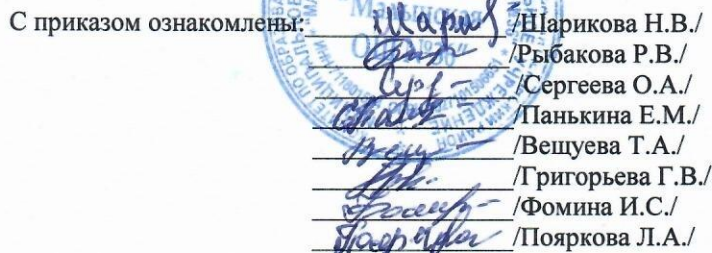 С приказом ознакомлены: /Шарикова Н.В./
/Рыбакова Р.В./
/Сергеева О.А./
/Панькина Е.М./
/Вещуева Т.А./
/Григорьева Г.В./
/Фомина И.С./
/Пояркова Л.А./